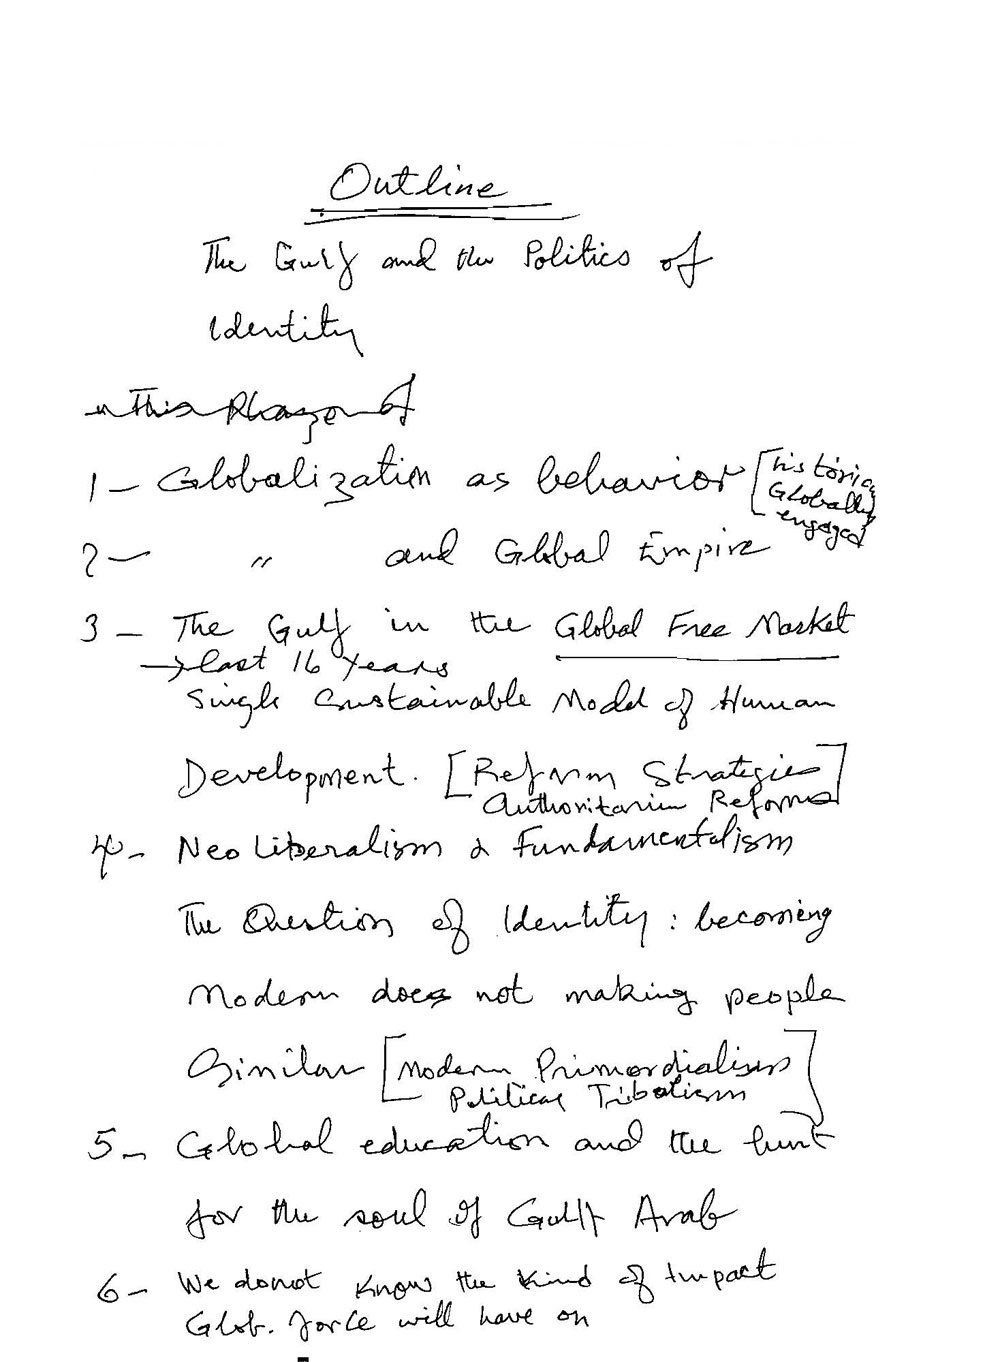 Outline
The Gulf and the Politics of
Identity
in This Phase of
1- Globalization as behavior [historical
Globally
engaged
2- " and Global Empire
3- The Gulf in the Global Free Market
→ last 16 Years
Single Sustainable Model of Human
Development. [Reform Strategies]
Authoritarian Reforms
4- Neo Liberalism & Fundamentalism
The Question of Identity: becoming
Modern does not making people
Similar [Modern Primordialism]
Political Tribalism
5- Global education and the hunt
for the soul of Gulf Arab
6- We donot know the kind of Impact
Glob. force will have on